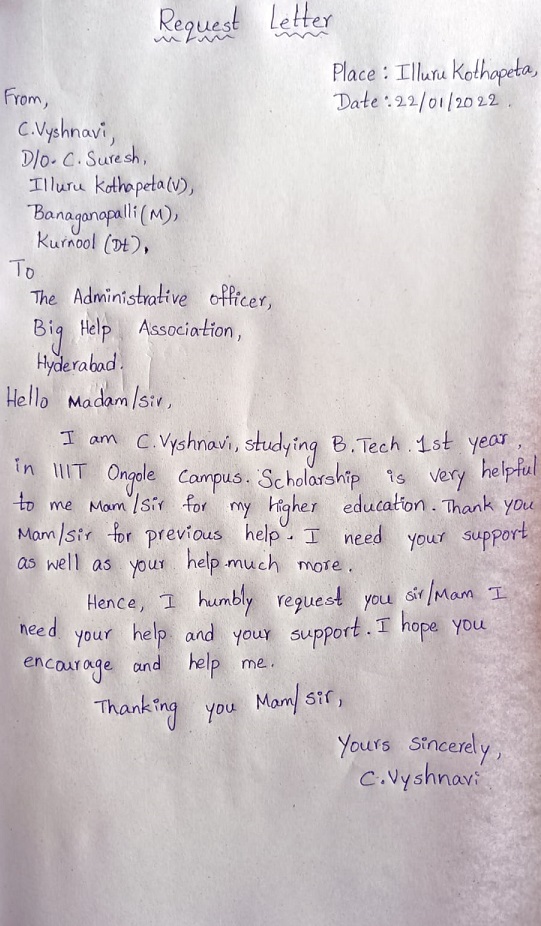 Request Letter
Place : Illuru Kothapeta,
Date : 22/01/2022.
From,
C.Vyshnavi,
D/o. C. Suresh,
Illuru Kothapeta(V),
Banaganapalli(M),
Kurnool (Dt),
To
The Administrative officer,
Big Help Association,
Hyderabad.
Hello Madam/sir,
I am C.Vyshnavi, studying B.Tech. 1st year,
in IIIT Ongole Campus. Scholarship is very helpful
to me Mam/Sir for my higher education. Thank you
Mam/sir for previous help. I need your support
as well as your help much more.
Hence, I humbly request you sir/Mam I
need your help and your support. I hope you
encourage and help me.
Thanking you Mam/sir,
Yours Sincerely,
C.Vyshnavi